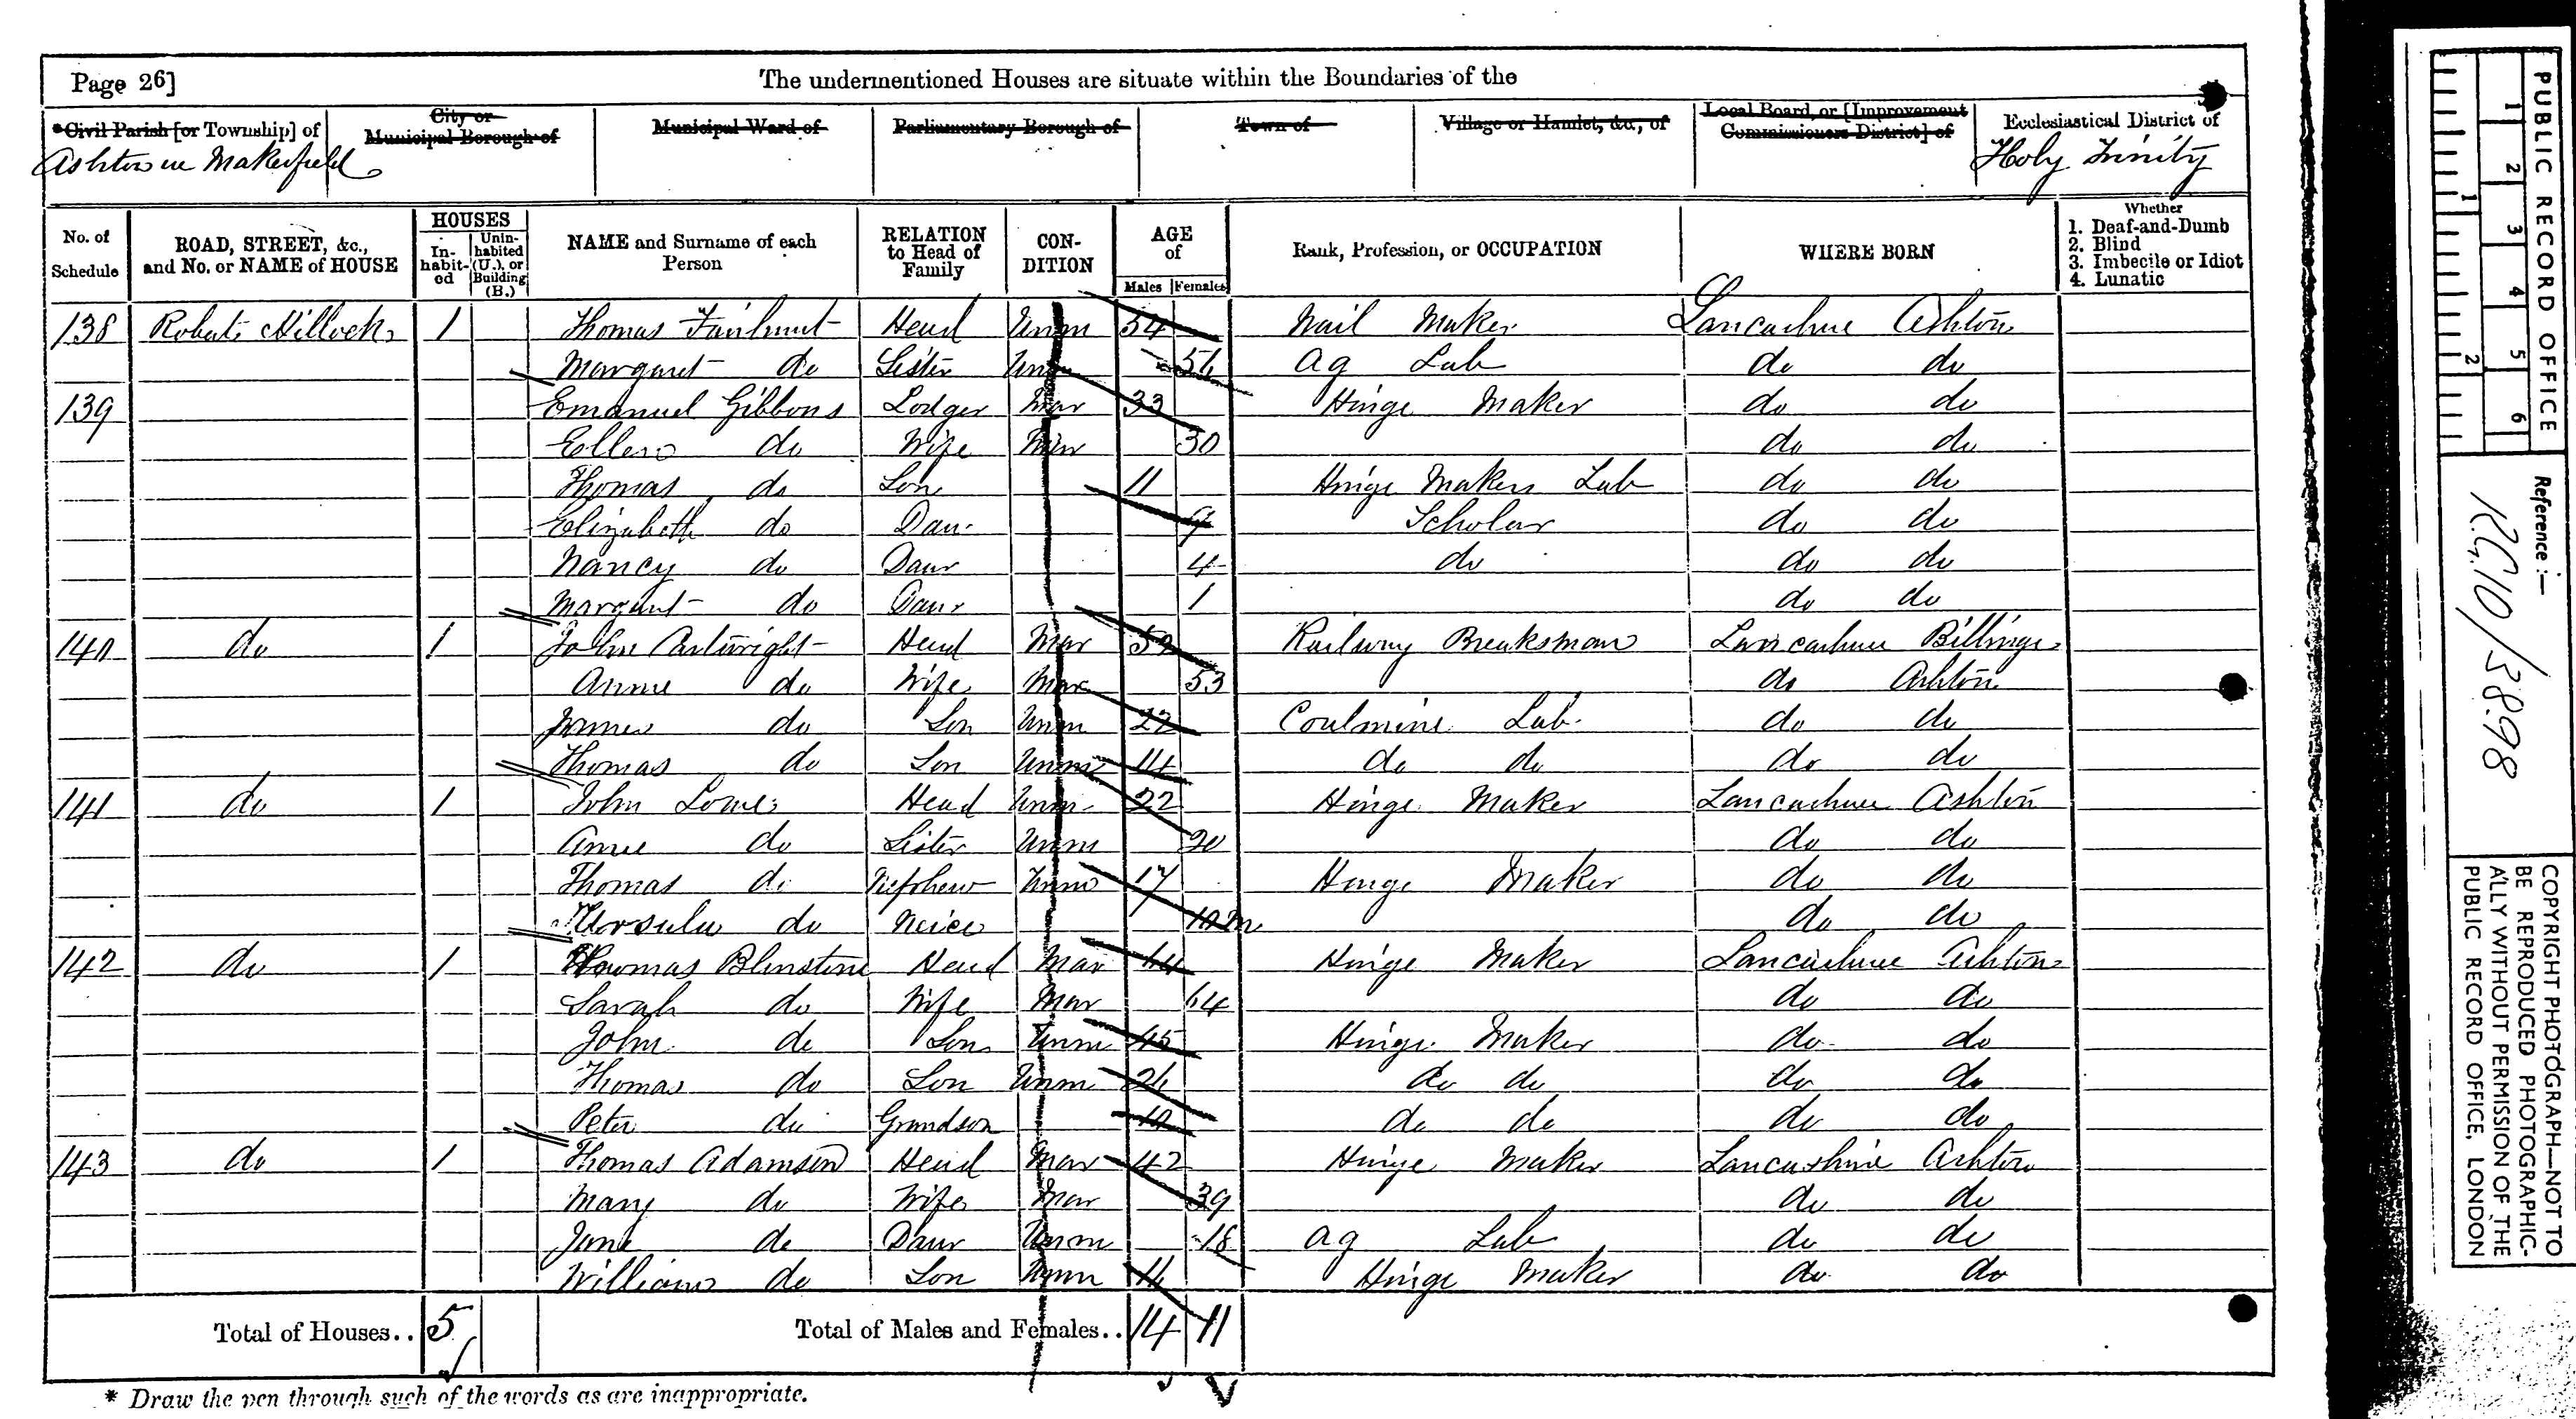 Page 26]
The undermentioned Houses are situate within the Boundaries of the
*Civil Parish [or Township] of
City or Municipal Borough of
Municipal Ward of
Parliamentary Borough of
Town of
Village or Hamlet, &c., of
Local Board, or [Improvement Commissioners District] of
Ecclesiastical District of
Ashton in Makerfield
Holy Trinity
No. of Schedule
ROAD, STREET, &c., and No. or NAME of HOUSE
HOUSES
In-habit-ed
Unin-habited (U.), or Building (B.)
NAME and Surname of each Person
RELATION to Head of Family
CON-DITION
AGE of
Males Females
Rank, Profession, or OCCUPATION
WHERE BORN
Whether
1. Deaf-and-Dumb
2. Blind
3. Imbecile or Idiot
4. Lunatic
138 Robats Hillock 1 Thomas Fairhurst Head Unm 54 Nail Maker Lancashire Ashton
Margaret do Sister Unm Ag Lab do do
139 Emanuel Gibbons Lodger Mar 33 Hinge Maker do do
Ellen do Wife Mar 30 do do
Thomas do Son 11 Hinge Makers Lab do do
Elizabeth do Dau 9 Scholar do do
Nancy do Daur 4 do do do
Margaret do Daur 1 do do
140 do 1 John Cartwright Head Mar Railway Breaksman Lancashire Billinge
Annie do Wife Mar 53 do Ashton
James do Son Unm 22 Coalmine Lab do do
Thomas do Son Unm 14 do do do do
141 do 1 John Lowe Head Unm 22 Hinge Maker Lancashire Ashton
Anne do Sister Unm 20 do do
Thomas do Nephew Unm 17 Hinge Maker do do
Ursula do Neice 10m do do
142 do 1 Thomas Head Mar Hinge Maker Lancashire Ashton
Sarah do Wife Mar 64 do do
John do Son Unm 45 Hinge Maker do do
Thomas do Son Unm do do do do
Peter do Grandson do do do do
143 do 1 Thomas Adamson Head Mar 42 Hinge Maker Lancashire Ashton
Mary do Wife Mar 39 do do
Jane do Daur Unm 18 Ag Lab do do
William do Son Unm Hinge Maker do do
Total of Houses.. 5
Total of Males and Females.. 14 11
* Draw the pen through such of the words as are inappropriate.
PUBLIC RECORD OFFICE
1 2 3 4 5 6
1 2
Reference:—
RG10/3898
COPYRIGHT PHOTOGRAPH—NOT TO
BE REPRODUCED PHOTOGRAPHIC-
ALLY WITHOUT PERMISSION OF THE
PUBLIC RECORD OFFICE, LONDON